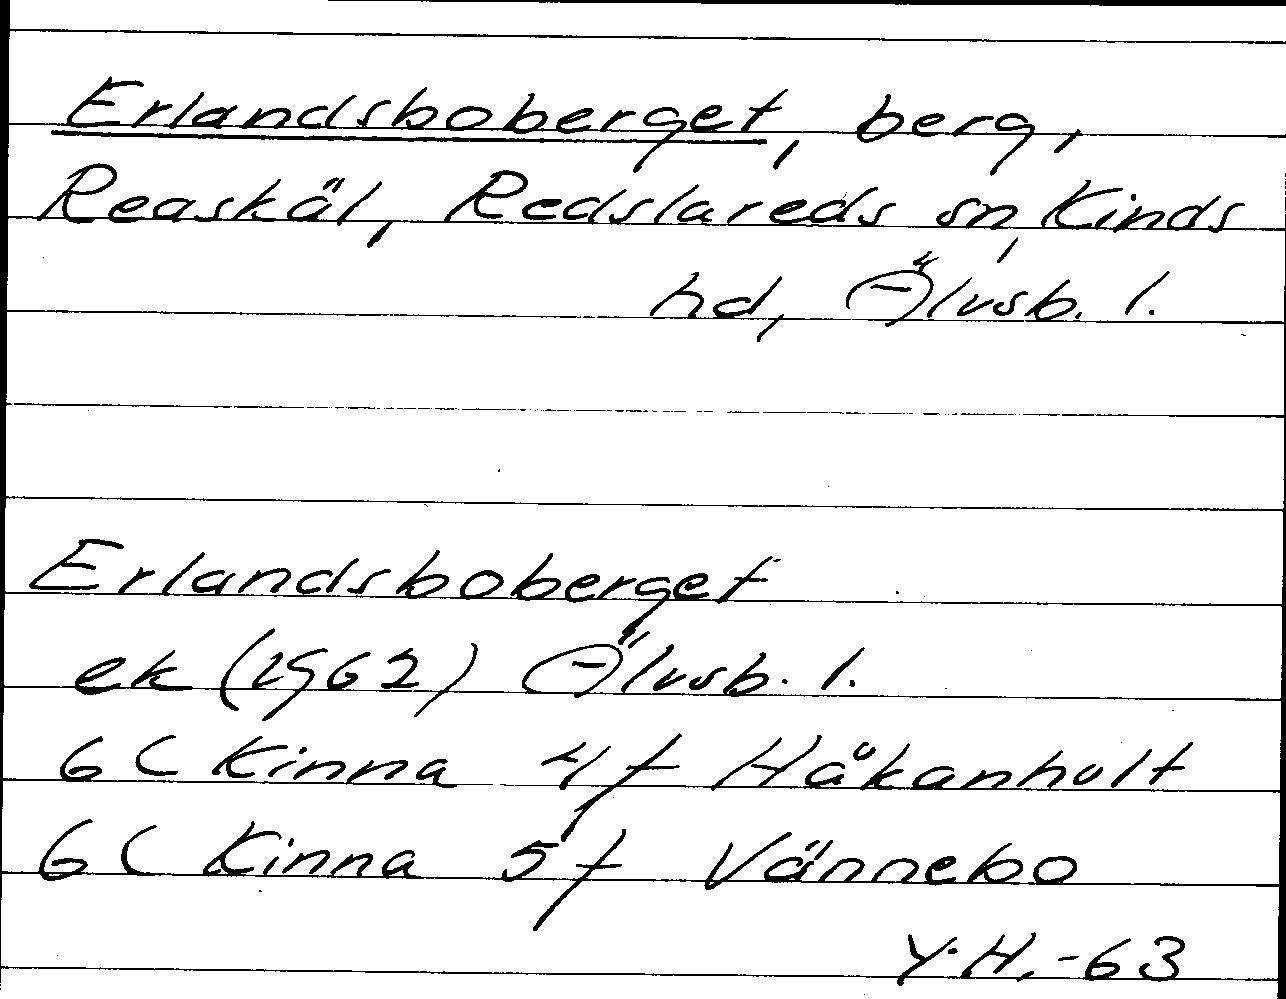 Erlandsboberget, berg,
Reaskäl, Redslareds sn, Kinds
hd, Älvsb. l.
Erlandsboberget
ek (1962) Älvsb. l.
6C Kinna 4f Håkanhult
6C Kinna 5f Vännebo
Y.H.-63